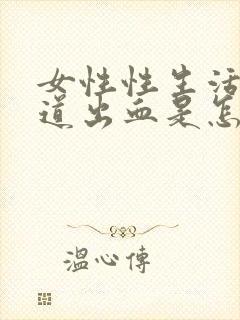 女性性生活
道出血是怎
温心傳